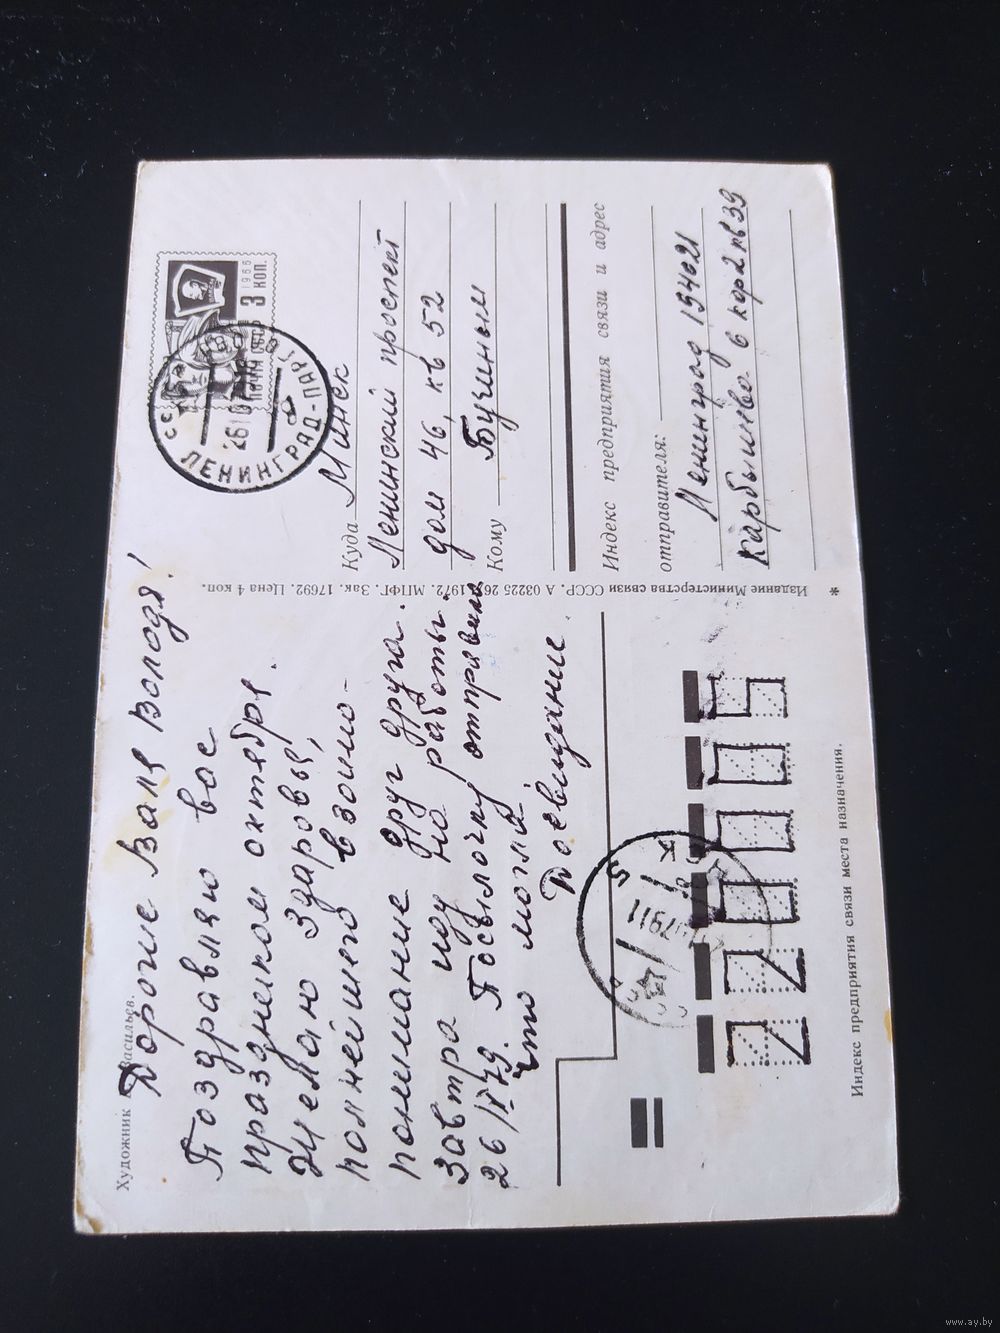 Художник Васильев.
Дорогие Валя Володя!
Поздравляю вас
праздником октября.
Желаю здаровья,
полнейшего взоимо-
понимание друг друга.
завтра иду на работы.
26/ 79. Посылочку отправила
что могла
Досвидание.
Издание Министерства связи СССР. А 03225 26. 1972. МПФГ. Зак. 17692. Цена 4 коп.
*
1966
3 коп.
почта СССР
ЛЕНИНГРАД-ПАРГ
26
8
Куда Минск
Ленинский проспект
дом 46, кв 52
Кому Бучиным
Индекс предприятия связи и адрес
отправителя:
Ленинград 194021
Карбышева 6 кор 2 кв 39
220005
Индекс предприятия связи места назначения.
www.ay.by